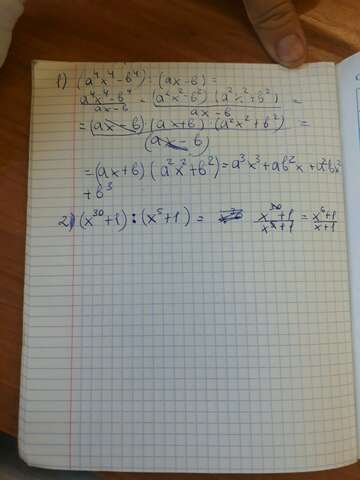 1) (a⁴x⁴-в⁴) : (ax-в) =
(a⁴x⁴-в⁴)/(ax-в) = (a²x²-в²)(a²x²+в²)/(ax-в) =
= (ax-в)(ax+в)(a²x²+в²)/(ax-в) =
= (ax+в)(a²x²+в²) = a³x³+aв²x+a²вx²
+в³
2) (x³⁰+1) : (x⁵+1) = (x³⁰+1)/(x⁵+1) = (x⁶+1)/(x+1)